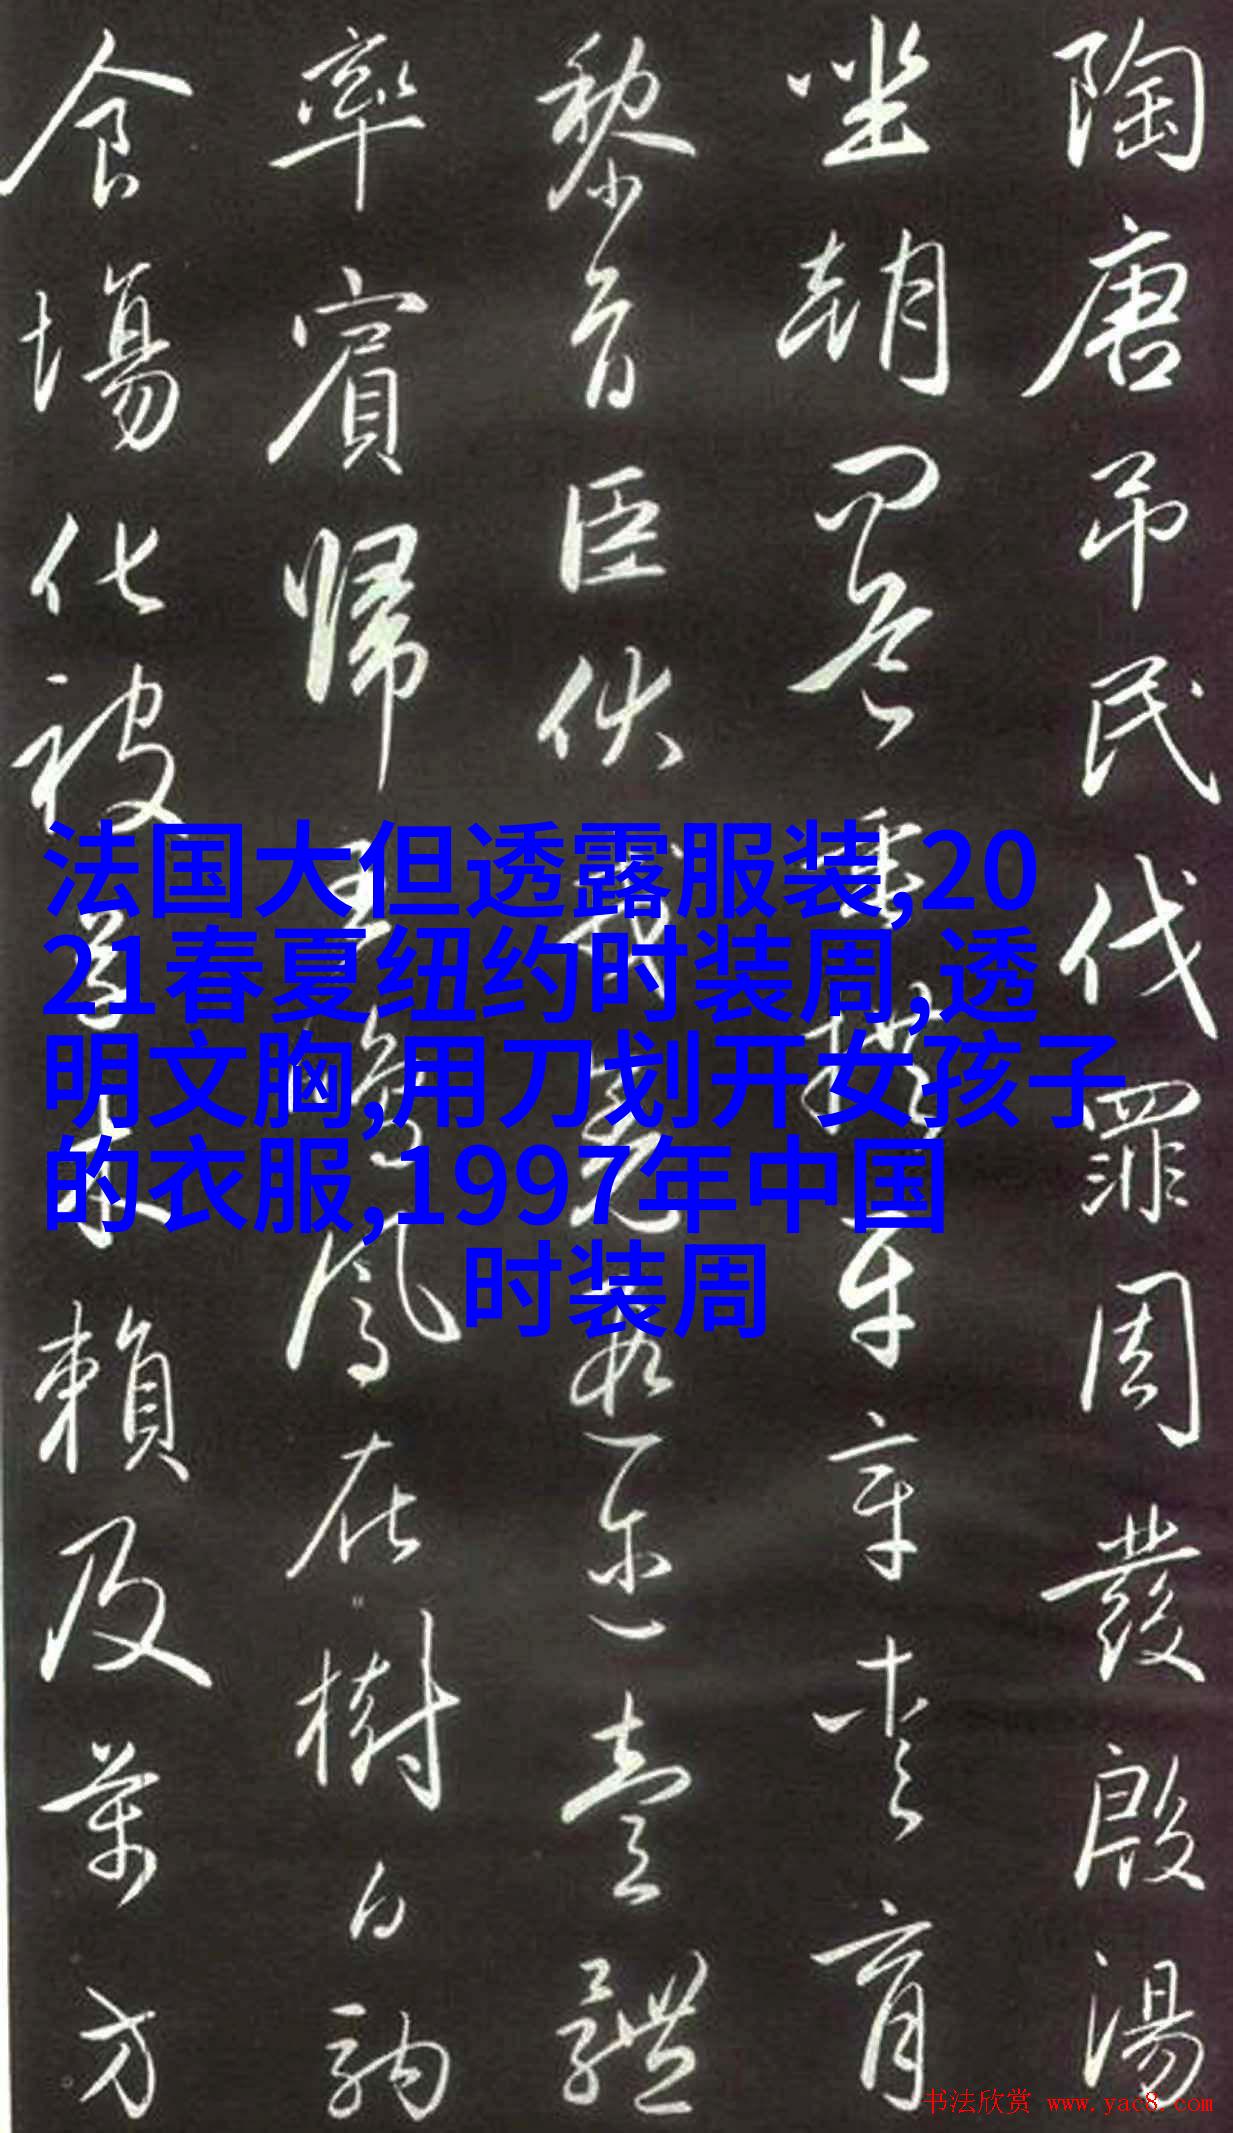 陶唐吊民伐罪周發殷湯
坐朝問道垂拱平章愛育
黎首臣伏戎羌遐迩壹體
率賓歸王鳴鳳在樹白駒
食場化被草木賴及萬方
法国大但透露服装,20
21春夏纽约时装周,透
明文胸,用刀划开女孩子
的衣服,1997年中国
时装周
书法欣赏 www.yac8.com